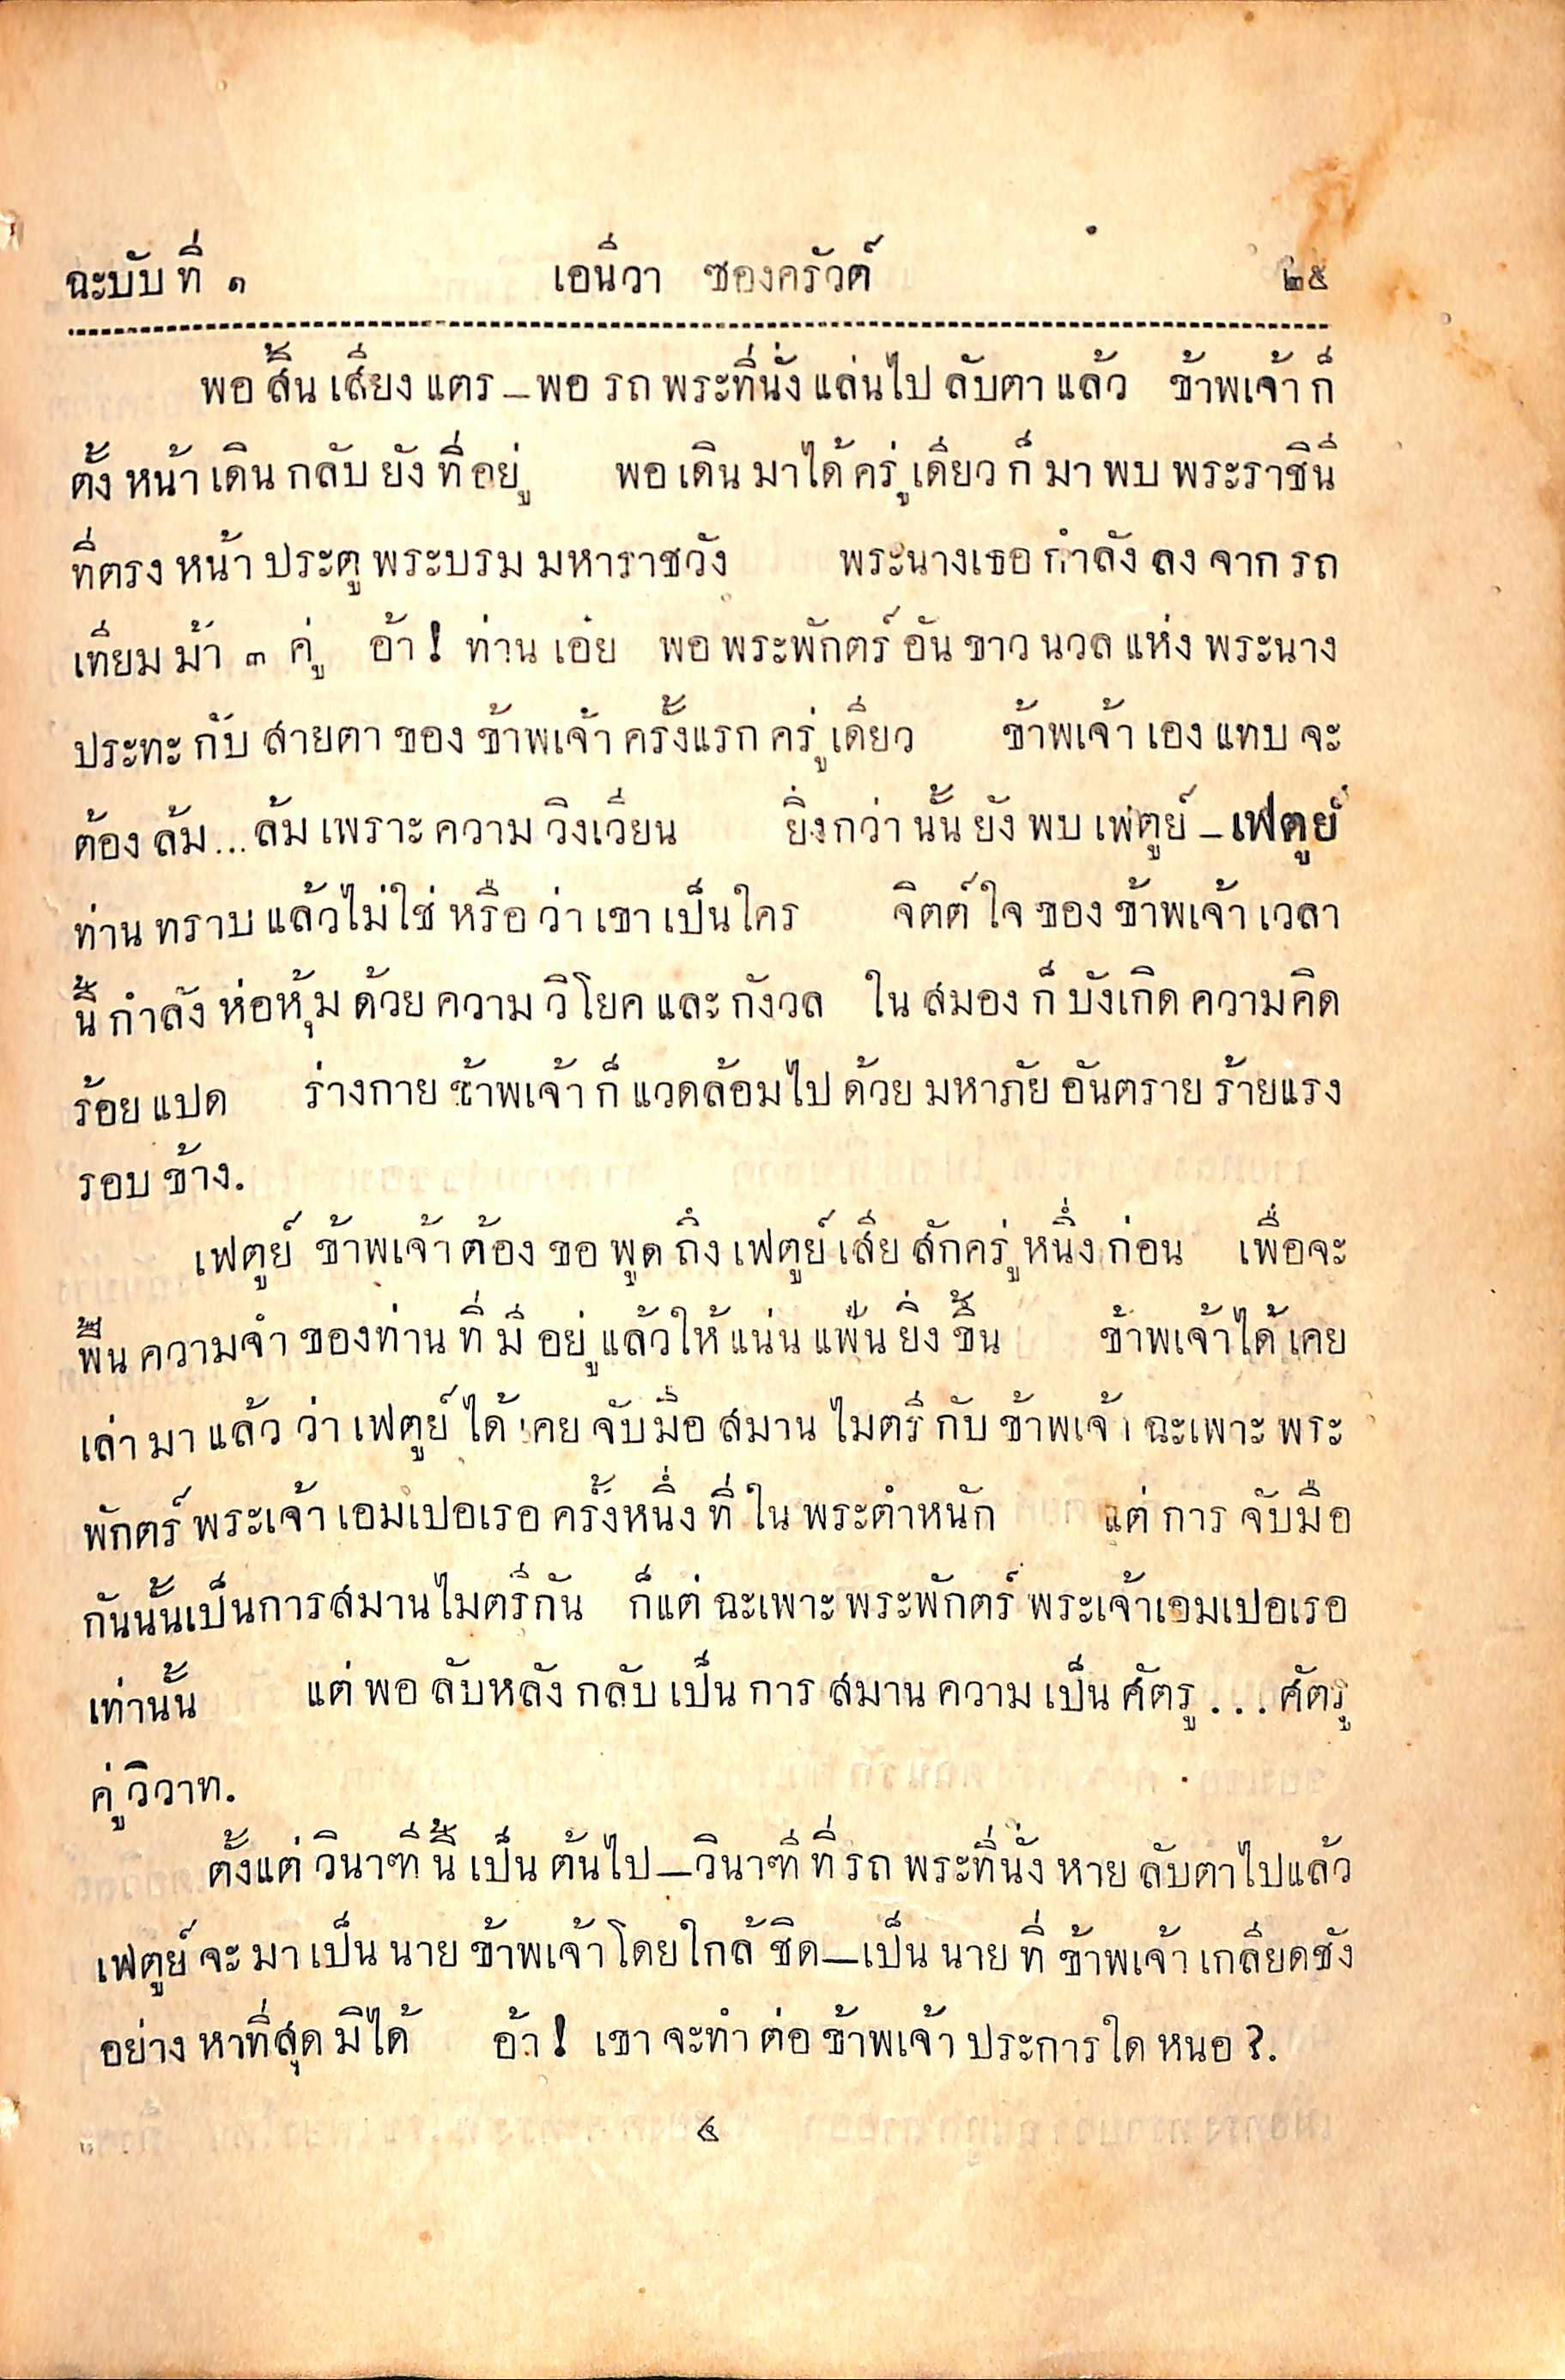 ฉะบับ ที่ ๑ เอนีวา ซองครัวต์ ๒๕
พอ สิ้น เสียง แตร — พอ รถ พระที่นั่ง แล่นไป ลับตา แล้ว ข้าพเจ้า ก็
ตั้ง หน้า เดิน กลับ ยัง ที่ อยู่ พอ เดิน มาได้ ครู่ เดียว ก็ มา พบ พระราชินี
ที่ตรง หน้า ประตู พระบรม มหาราชวัง พระนางเธอ กำลัง ลง จาก รถ
เทียม ม้า ๓ คู่ อ้า ! ท่าน เอ๋ย พอ พระพักตร์ อัน ขาว นวล แห่ง พระนาง
ประทะ กับ สายตา ของ ข้าพเจ้า ครั้งแรก ครู่ เดียว ข้าพเจ้า เอง แทบ จะ
ต้อง ล้ม ... ล้ม เพราะ ความ วิงเวียน ยิ่ง กว่า นั้น ยัง พบ เฟตูย์ — เฟตูย์
ท่าน ทราบ แล้วไม่ใช่ หรือ ว่า เขา เป็น ใคร จิตต์ ใจ ของ ข้าพเจ้า เวลา
นี้ กำลัง ห่อหุ้ม ด้วย ความ วิโยค และ กังวล ใน สมอง ก็ บังเกิด ความคิด
ร้อย แปด ร่างกาย ข้าพเจ้า ก็ แวดล้อมไป ด้วย มหาภัย อันตราย ร้ายแรง
รอบ ข้าง.
เฟตูย์ ข้าพเจ้า ต้อง ขอ พูด ถึง เฟตูย์ เสีย สักครู่ หนึ่ง ก่อน เพื่อจะ
ฟื้น ความจำ ของท่าน ที่ มี อยู่ แล้วให้ แน่น แฟ้น ยิ่ง ขึ้น ข้าพเจ้าได้ เคย
เล่า มา แล้ว ว่า เฟตูย์ ได้ เคย จับ มือ สมาน ไมตรี กับ ข้าพเจ้า ฉะเพาะ พระ
พักตร์ พระเจ้า เอมเปอเรอ ครั้งหนึ่ง ที่ ใน พระตำหนัก แต่ การ จับมือ
กันนั้นเป็นการสมานไมตรีกัน ก็แต่ ฉะเพาะ พระพักตร์ พระเจ้าเอมเปอเรอ
เท่านั้น แต่ พอ ลับหลัง กลับ เป็น การ สมาน ความ เป็น ศัตรู ... ศัตรู
คู่ วิวาท.
ตั้งแต่ วินาฑี นี้ เป็น ต้นไป — วินาฑี ที่ รถ พระที่นั่ง หาย ลับตาไปแล้ว
เฟตูย์ จะ มา เป็น นาย ข้าพเจ้า โดยใกล้ ชิด — เป็น นาย ที่ ข้าพเจ้า เกลียดชัง
อย่าง หาที่สุด มิได้ อ้า ! เขา จะทำ ต่อ ข้าพเจ้า ประการใด หนอ ?.
๔